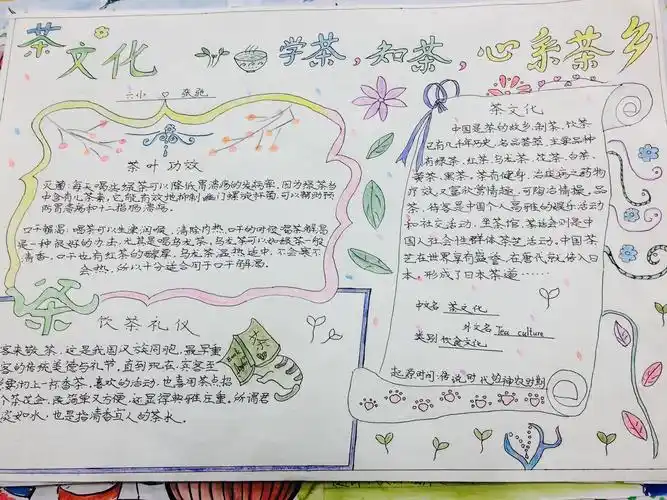 茶文化
学茶，知茶，心系茶乡
六小 张驰
茶叶功效
灭菌：每天喝些绿茶可以降低胃溃疡的发病率，因为绿茶当
中含有儿茶素，它能有效地抑制幽门螺旋杆菌，可以帮助预
防胃溃疡和十二指肠溃疡。
口干解渴：喝茶可以生津润喉，清除内热，口干的时候喝茶解渴
是一种很好的方法，尤其是喝乌龙茶，乌龙茶可以如绿茶一般
清香，口干也有红茶的醇厚，乌龙茶温热适中，不会寒不
会热，所以十分适合用于口干解渴。
茶
饮茶礼仪
客来敬茶，这是我国汉族同胞，最早重
客的传统美德与礼节，直到现在，宾客至
上一杯香茶，喜欢的活动，也喜用茶点招
个茶花会，既简单又方便，还显得典雅庄重，所谓君
淡如水，也是指清香宜人的茶水。
茶
茶文化
中国是茶的故乡，制茶、饮茶
已有几千年历史，名品荟萃，主要品种
有绿茶、红茶、乌龙茶、饮茶、白茶、
黄茶、黑茶。茶有健身、治疾病之药物
疗效，又富欣赏情趣，可陶冶情操，品
茶、待客是中国个人高雅的娱乐活动
和社交活动，坐茶馆、茶话会则是中
国人社会性群体茶艺活动。中国茶
艺在世界享有盛誉，在唐代就传入日
本，形成了日本茶道……
中文名 茶文化
外文名 Tea culture
类别 饮食文化
起源时间：传说时代的神农时期